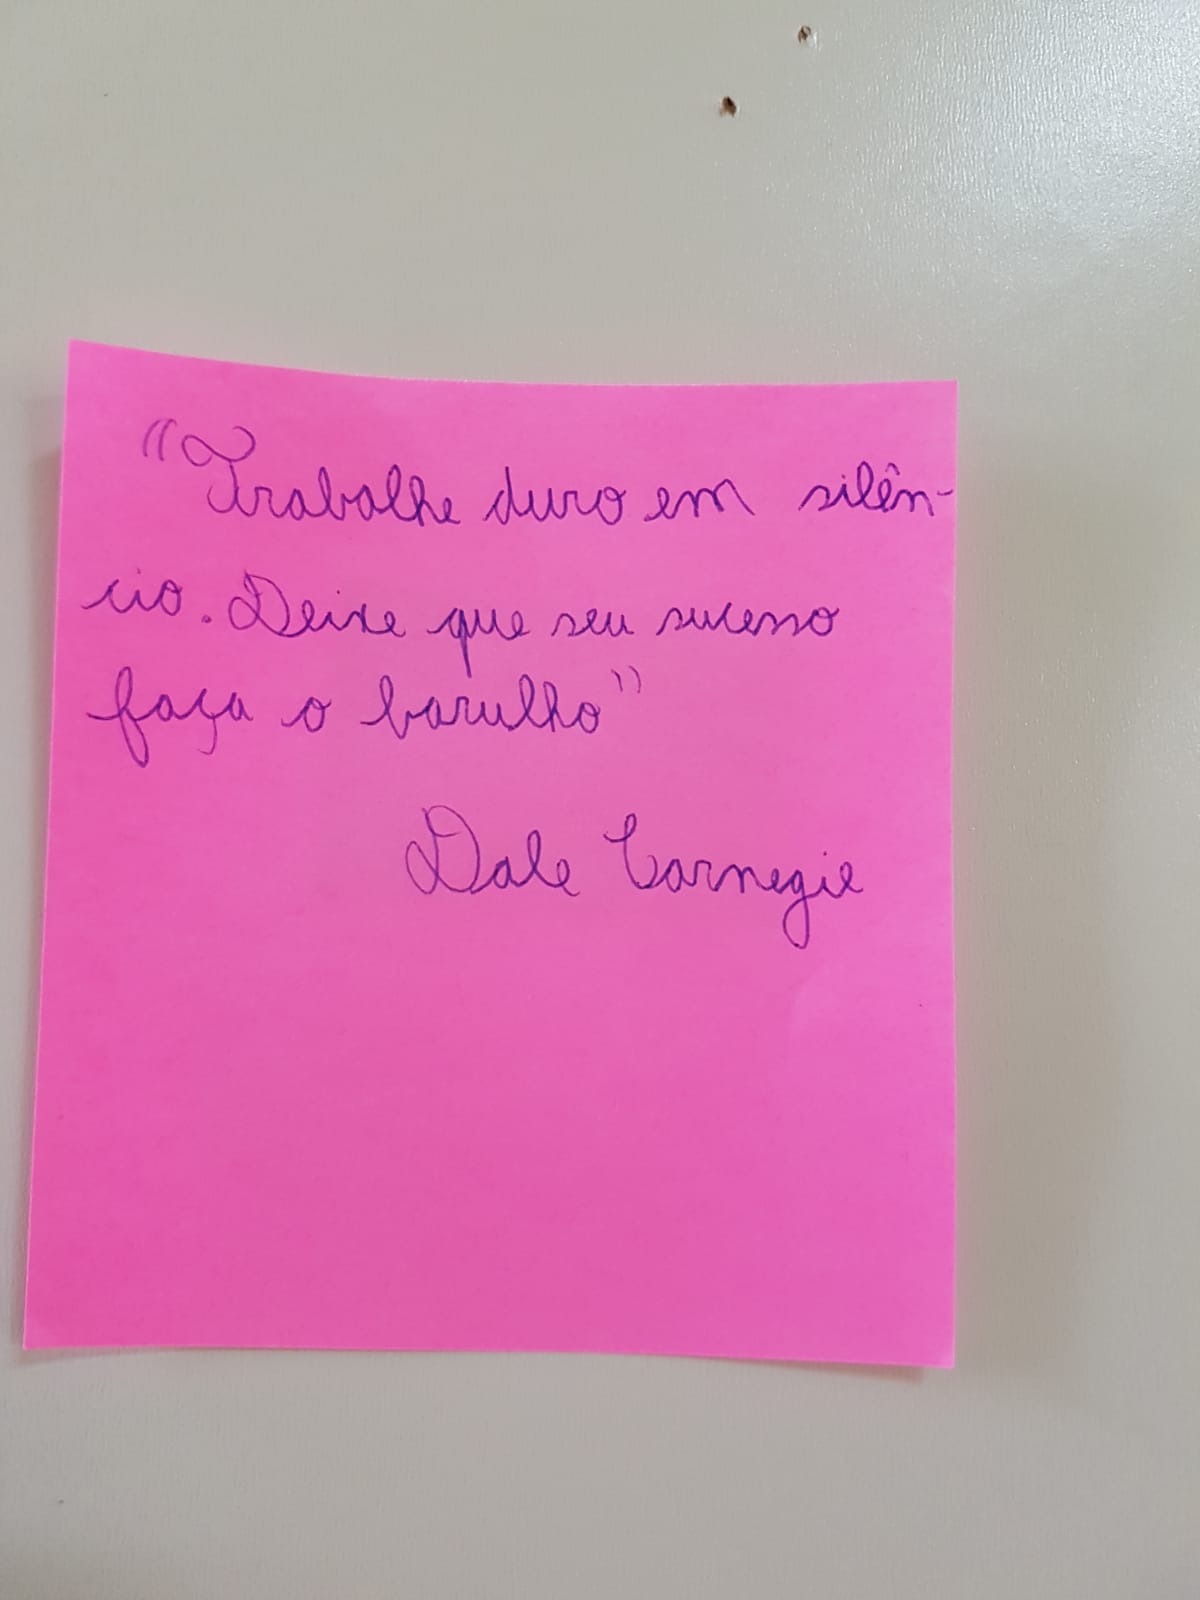 "Trabalhe duro em silên-
cio. Deixe que seu sucesso
faça o barulho"
Dale Carnegie